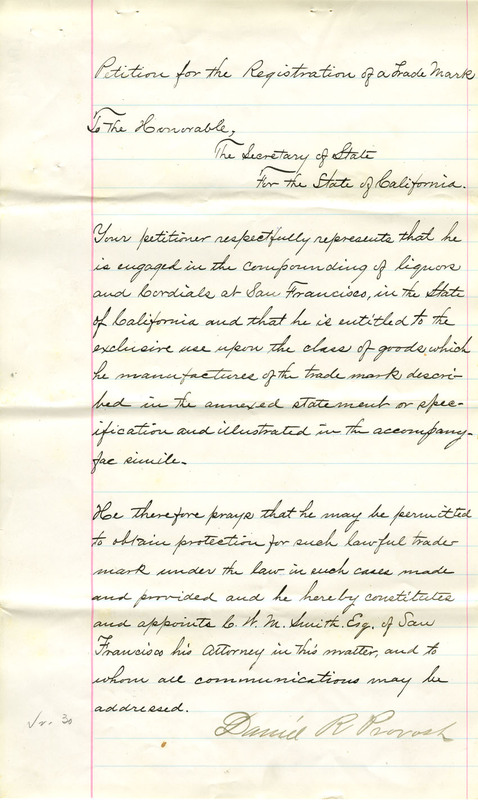 Petition for the Registration of a Trade Mark
To The Honorable,
The Secretary of State
For the State of California.
Your petitioner respectfully represents that he
is engaged in the compounding of liquors
and Cordials at San Francisco, in the State
of California and that he is entitled to the
exclusive use upon the class of goods which
he manufactures of the trade mark descri-
bed in the annexed statement or spec-
ification and illustrated in the accompany-
fac simile.
He therefore prays that he may be permitted
to obtain protection for such lawful trade
mark under the law in such cases made
and provided and he hereby constitutes
and appoints C. W. M. Smith. Esq. of San
Francisco his Attorney in this matter, and to
whom all communications may be
addressed.
Daniel R Provost